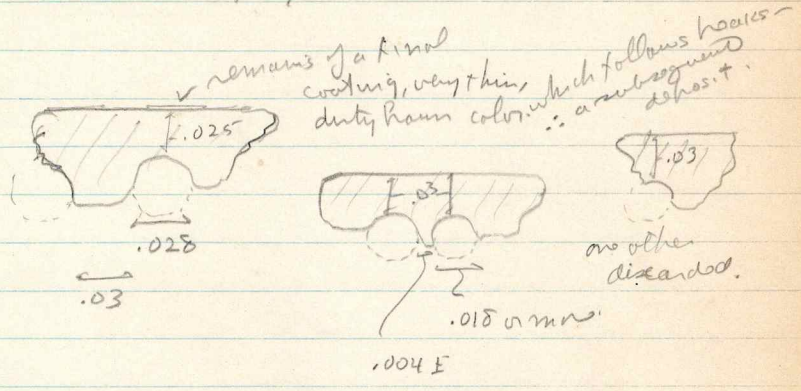 remains of a final
coating, very thin,
dirty brown color. which follows
∴ a subsequent
deposit.
.025
.028
.03
.03
.018 or more.
.004 E
.03
one other
discarded.